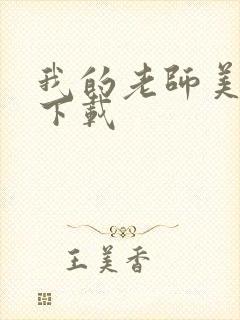 我的老師美
下載
王美香